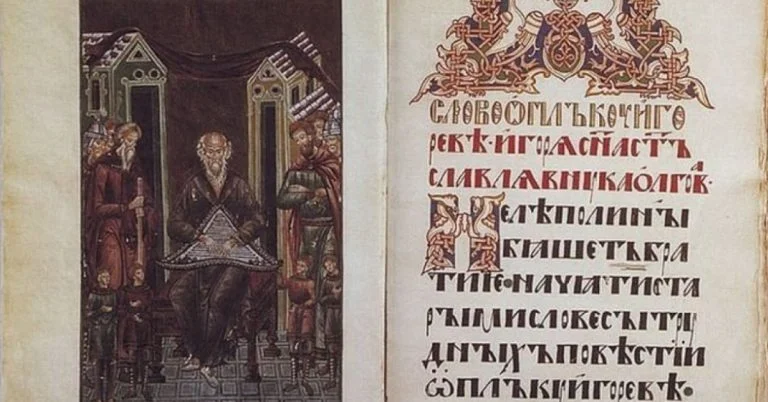 СЛОВО Ѡ ПЛЪКѸ ИГО
РЕВѢ · ИГОРѦ СН҃А СТ҃Ъ
СЛАВЛѦ ВНѸКА ОЛГОВА ·
НЕ ЛѢПО ЛИ НЫ
БѦШЕТЪ БРА
ТИЕ · НАЧѦТИ СТА
РЫМИ СЛОВЕСЫ ТРѸ
ДНЫХЪ ПОВѢСТІЙ
Ѡ ПЛЪКѸ ИГОРЕВѢ ·